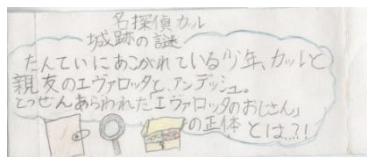 名探偵カル
城跡の謎
たんていにあこがれている少年、カルと
親友のエヴァロッタと、アンデッシュ。
とつぜんあらわれた「エヴァロッタのおじさん」
の正体とは?!